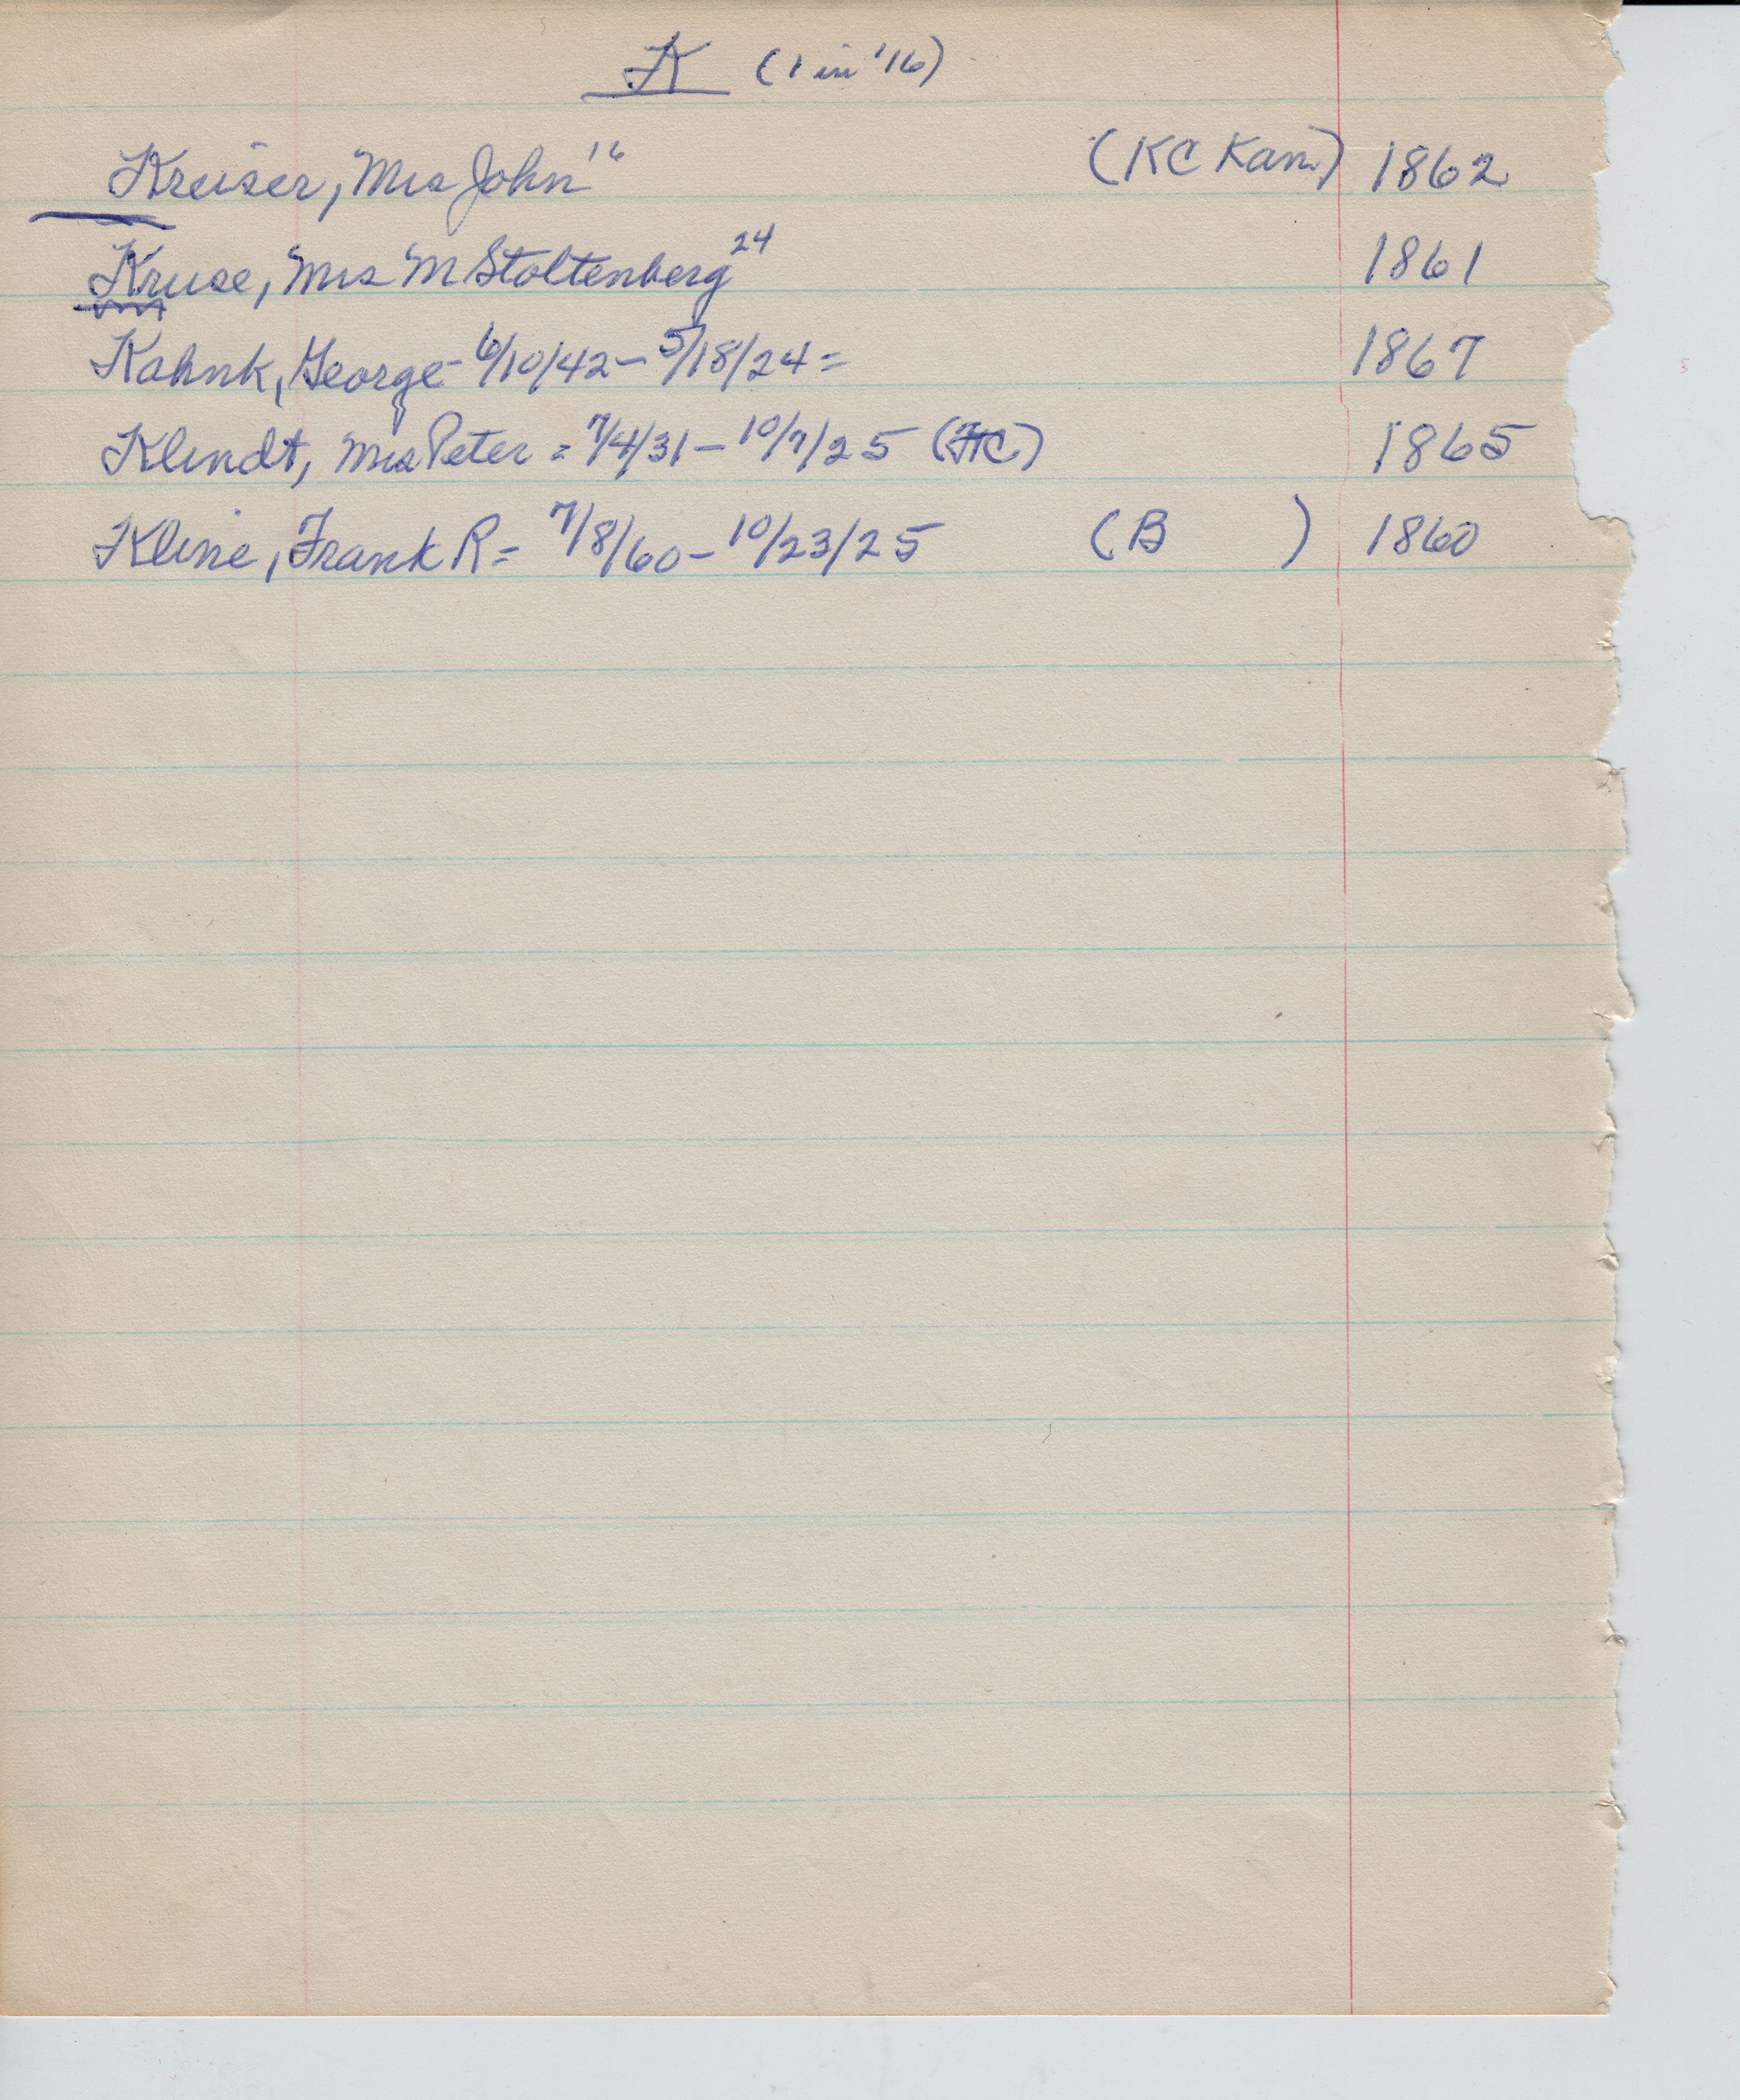 K (1 in '16)
Kreiser, Mrs John '16 (KC Kan.) 1862
Kruse, Mrs M Stoltenberg 24 1861
Kahnk, George - 6/10/42 - 5/18/24 = 1867
Klindt, Mrs Peter = 7/4/31 - 10/7/25 (HC) 1865
Kline, Frank R = 7/8/60 - 10/23/25 (B ) 1860